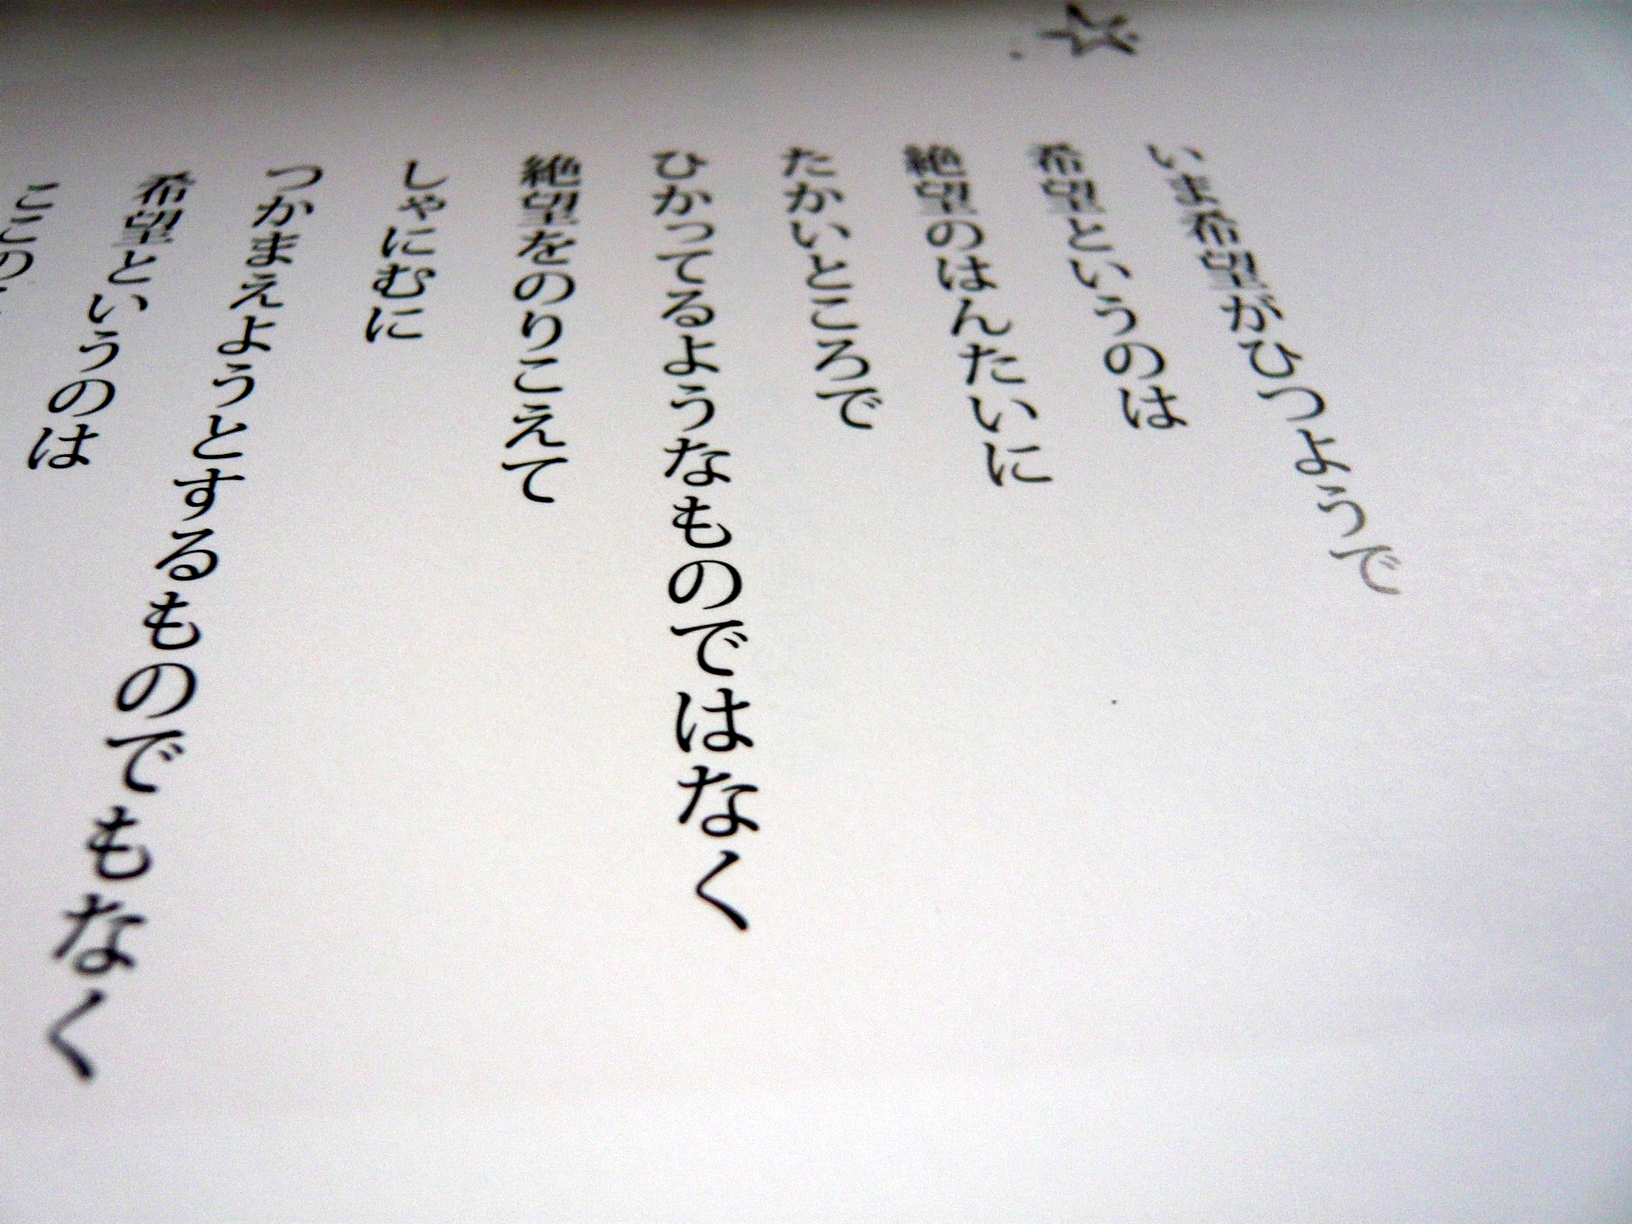 ☆
いま希望がひつようで
希望というのは
絶望のはんたいに
たかいところで
ひかってるようなものではなく
絶望をのりこえて
しゃにむに
つかまえようとするものでもなく
希望というのは
ここの